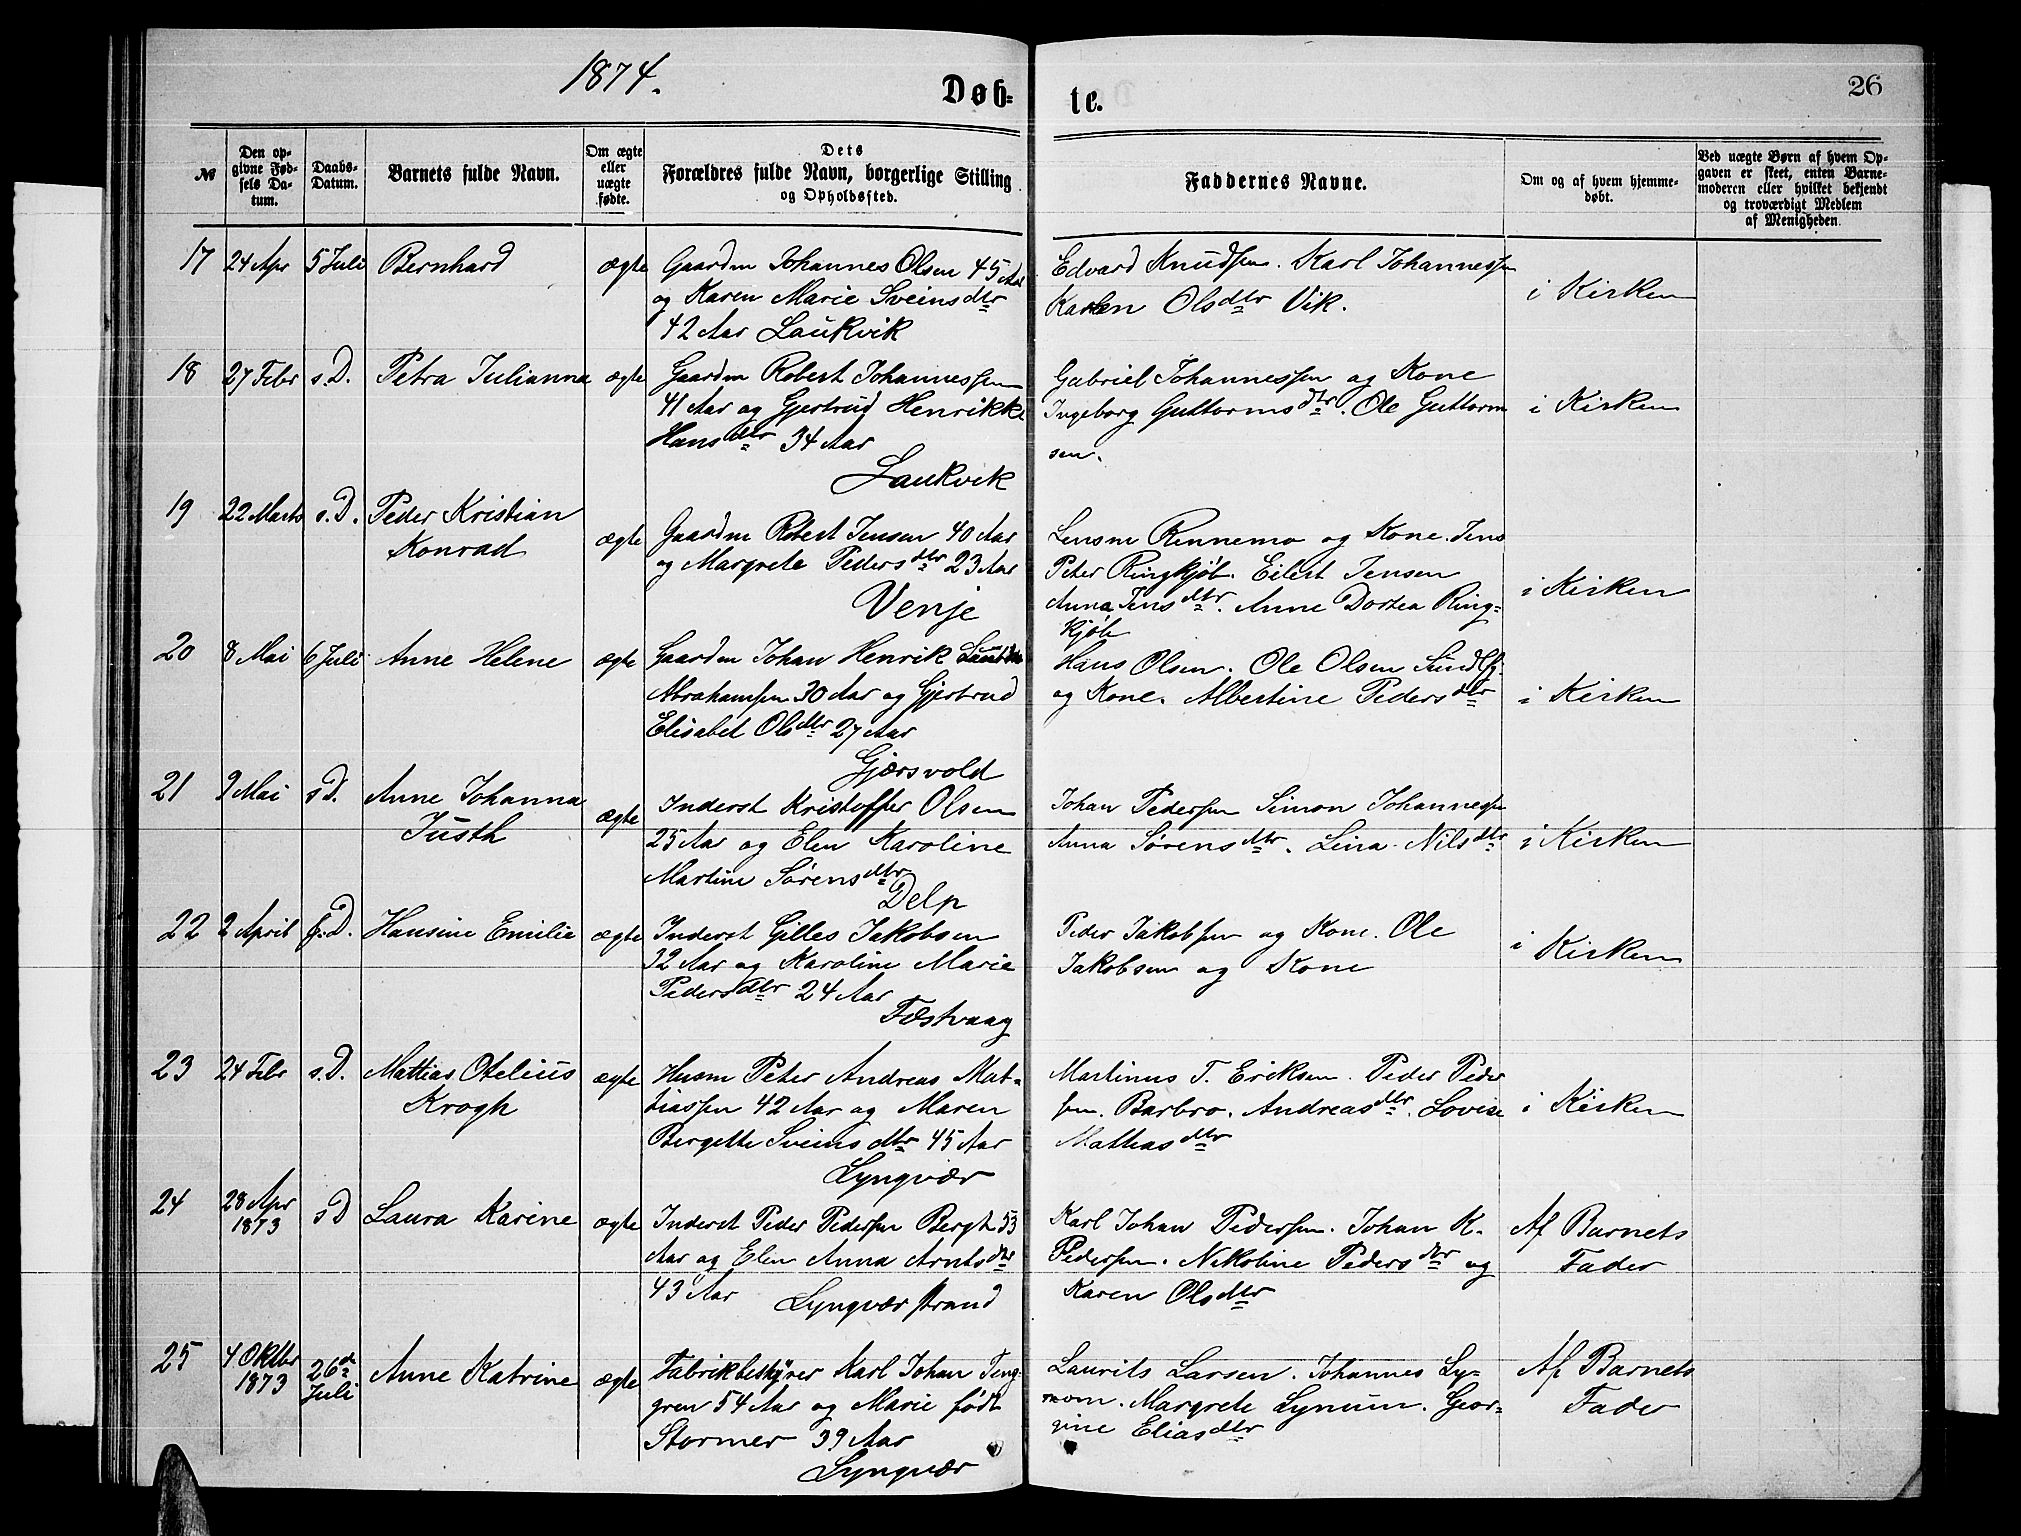 1874.
Døb-
te.
26
№
Den op-
givne Fød-
sels Da-
tum.
Daabs-
Datum.
Barnets fulde Navn.
Om ægte
eller
uægte
fødte.
Dets
Forældres fulde Navn, borgerlige Stilling
og Opholdssted.
Faddernes Navne.
Om og af hvem hjemme-
døbt.
Ved uægte Børn af hvem Op-
gaven er skeet, enten Barne-
moderen eller hvilket bekjendt
og troværdigt Medlem
af Menigheden.
17 24 Apr 5 Juli Bernhard ægte Gaardm Johannes Olsen 45 Aar
og Karen Marie Sveinsdtr
42 Aar Laukvik
Edvard Knudsen. Karl Johannessen
Karen Olsdtr Vik.
i Kirken
18 27 Febr s.D. Petra Julianna ægte Gaardm Robert Johannessen
41 Aar og Gjertrud Henrikke
Hansdtr 34 Aar
Laukvik
Gabriel Johannessen og Kone
Ingeborg Guttormsdtr. Ole Guttorm
sen.
i Kirken
19 22 Marts s.D. Peder Kristian
Konrad
ægte Gaardm Robert Jensen 40 Aar
og Margrete Pedersdtr 23 Aar
Venje
Lensm Rennemo og Kone. Jens
Peter Ringkjøb. Eilert Jensen
Anna Jensdtr. Anne Dortea Ring-
kjøb
i Kirken
20 8 Mai 6 Juli Anne Helene ægte Gaardm Johan Henrik
Abrahamsen 30 Aar og Gjertrud
Elisabet Olsdtr 27 Aar
Gjærsvold
Hans Olsen. Ole Olsen Sundsfj.
og Kone. Albertine Pedersdtr
i Kirken
21 9 Mai sD. Anne Johanna
Justh
ægte Inderst Kristoffer Olsen
25 Aar og Elen Karoline
Martine Sørensdtr
Delp
Johan Pedersen Simon Johannessen
Anna Sørensdtr. Lina Nilsdtr
i Kirken
22 2 April s.D. Hansine Emilie ægte Inderst Gilles Jakobsen
32 Aar og Karoline Marie
Pedersdtr 24 Aar
Tæstvaag
Peder Jakobsen og Kone. Ole
Jakobsen og Kone
i Kirken
23 24 Febr s.D. Mattias Otelius
Krogh
ægte Husm Peter Andreas Mat-
tiassen 42 Aar og Maren
Bergette Sveinsdtr 45 Aar
Lyngvær
Martinus T. Eriksen. Peder Peder
sen. Barbro. Andreasdtr. Lovise
Mathiasdtr
i Kirken
24 28 Apr
1873
sD Laura Karine ægte Inderst Peder Pedersen Bergh 53
Aar og Elen Anna Arntsdtr
43 Aar Lyngværstrand
Karl Johan Pedersen. Johan K.
Pedersen. Nikoline Pedersdtr og
Karen Olsdtr
Af Barnets
Fader
25 4 Oktbr
1873
26de
Juli
Anne Katrine ægte Fabrikbestyrer Karl Johan Teng-
gren 54 Aar og Marie født
Stormer 39 Aar
Lyngvær
Laurits Larsen. Johannes Ly-
mom. Margrete Lynum. Geor-
gine Eliasdtr
Af Barnets
Fader